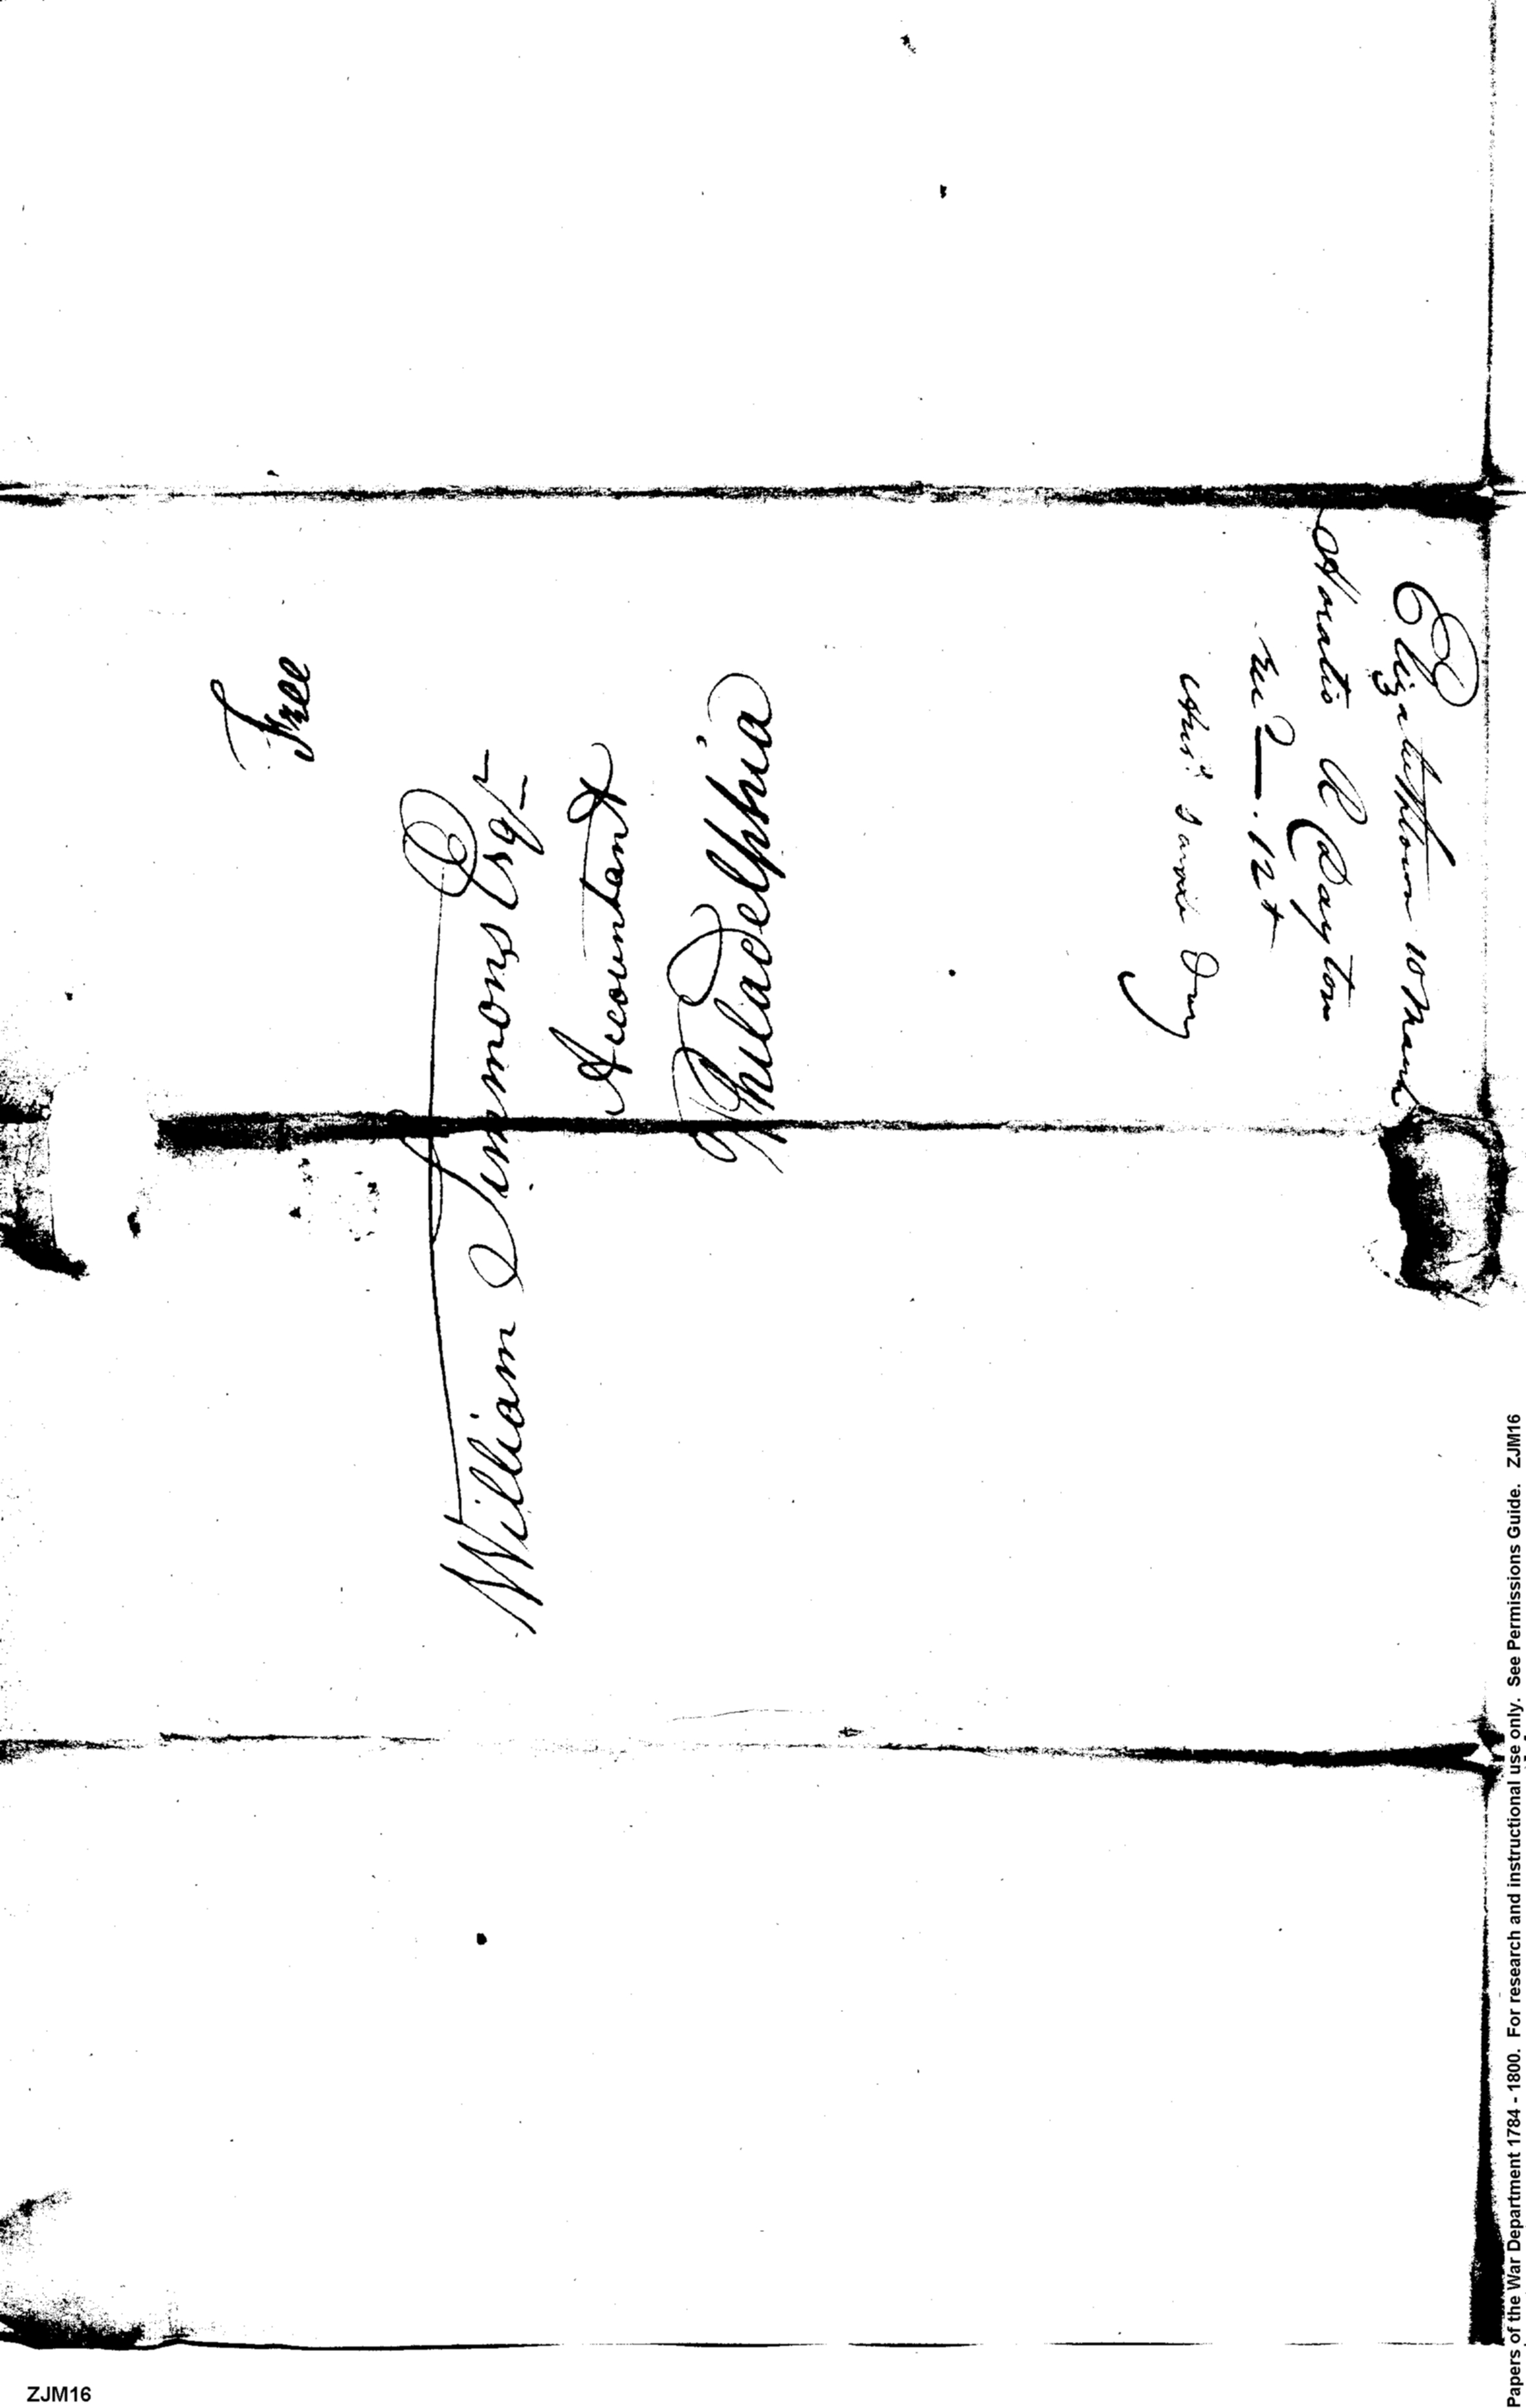 Free
William Simmons Esqr
Accountant
Philadelphia
Elizabethtown 10 March
Horatio R Dayton
Recd — 12 t
Ansd same Day
Papers of the War Department 1784 - 1800. For research and instructional use only. See Permissions Guide. ZJM16
ZJM16